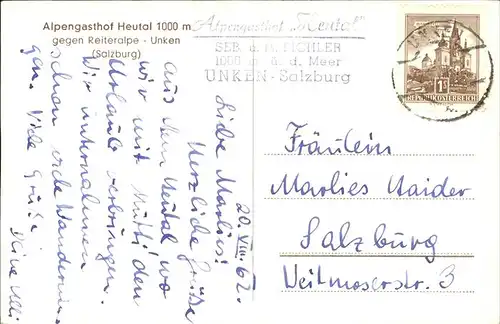 Alpengasthof Heutal 1000 m
gegen Reiteralpe - Unken
(Salzburg)
Alpengasthof „Heutal"
SEB. u. M. PICHLER
1000 m ü. d. Meer
UNKEN - Salzburg
UNKEN
1 S
REPUBLIK ÖSTERREICH
20. VIII. 62.
Liebe Marlies!
Herzliche Grüße
aus dem Heutal wo
wir mit Mutti den
Urlaub verbringen.
Wir unternahmen
schon viele Wanderun-
gen. Viele Grüße
Deine
Fräulein
Marlies Haider
Salzburg
Weitmoserstr. 3